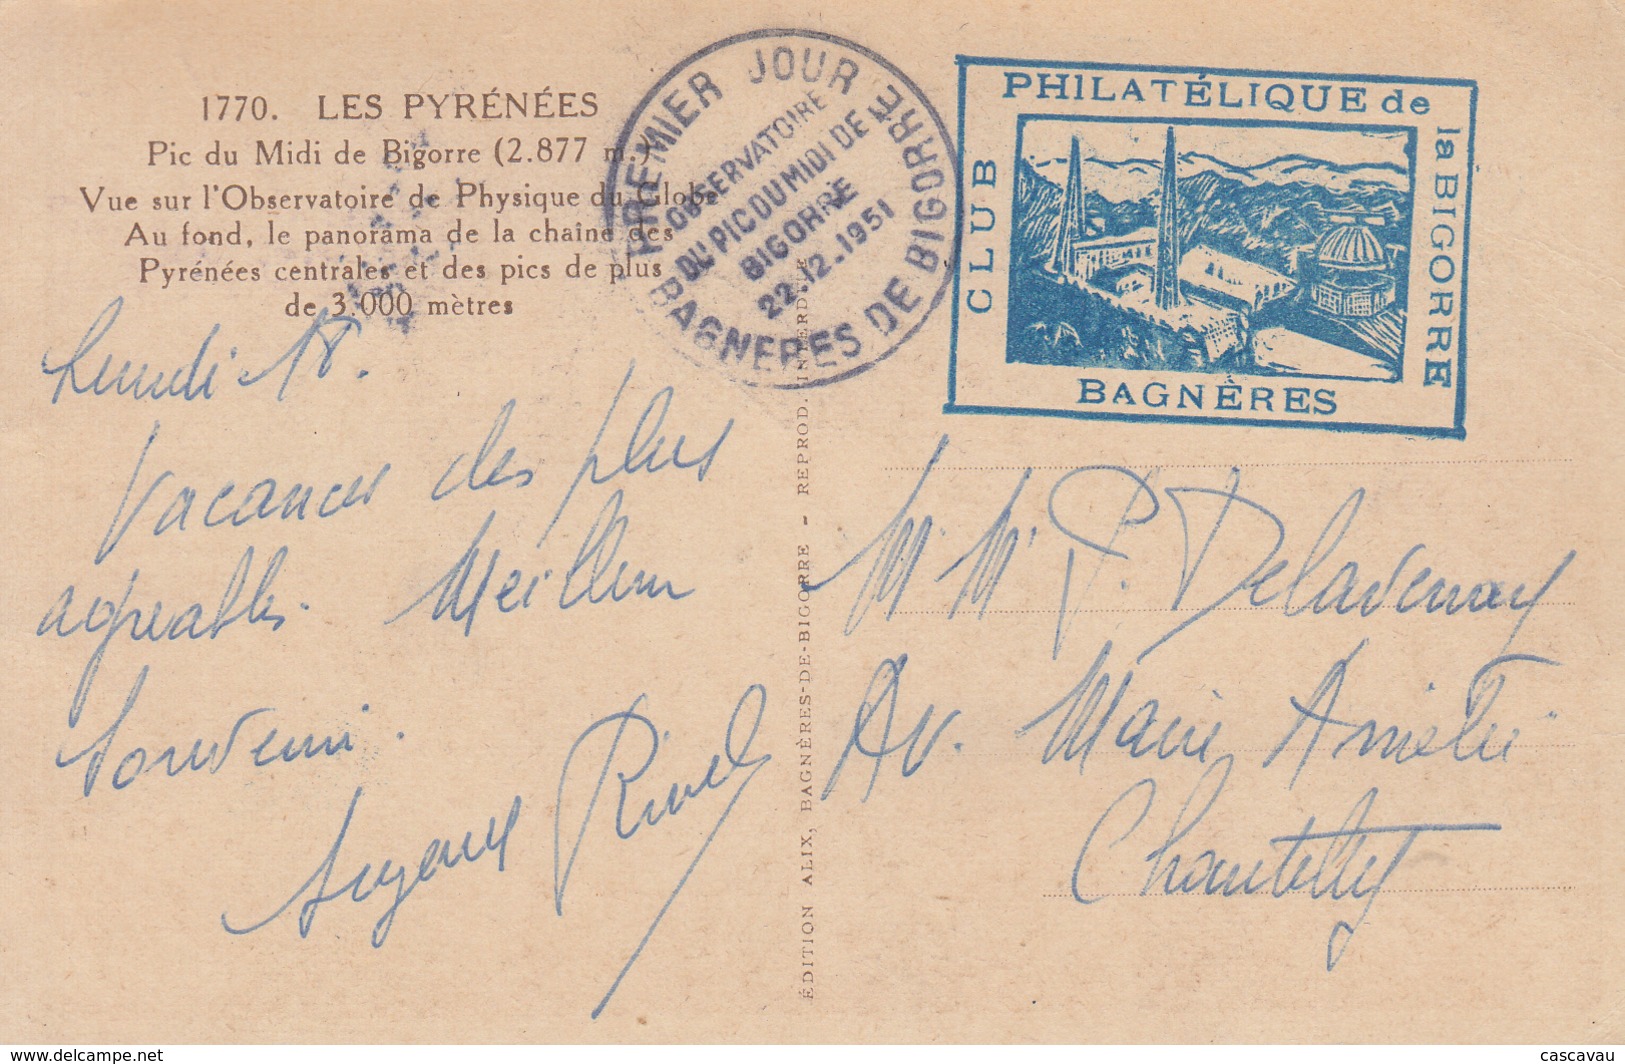 1770. LES PYRÉNÉES
Pic du Midi de Bigorre (2.877 m.)
Vue sur l'Observatoire de Physique du Globe
Au fond, le panorama de la chaîne des
Pyrénées centrales et des pics de plus
de 3.000 mètres
PREMIER JOUR
OBSERVATOIRE
DU PIC DU MIDI DE
BIGORRE
22.12.1951
BAGNERES DE BIGORRE
CLUB
PHILATÉLIQUE de
la BIGORRE
BAGNÈRES
Lundi 18.
Vacances des plus
agréables. Meilleur
Souvenir.
ÉDITION ALIX, BAGNÈRES-DE-BIGORRE - REPROD. INTERDITE
M. Mme P. Delavenay
Av. Marie Amélie
Chantilly
www.delcampe.net
cascavau